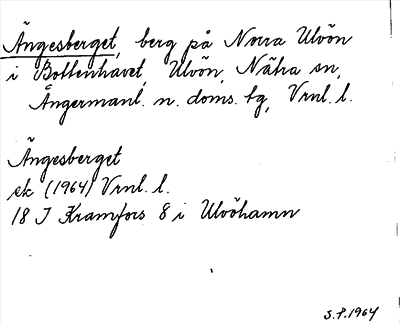 Ängesberget, berg på Norra Ulvön
i Bottenhavet, Ulvön, Nätra sn,
Ångermanl. n. doms. tg, Vrnl. l.
Ängesberget
ek (1964) Vrnl. l.
18 J Kramfors 8 i Ulvöhamn
S.P.1964